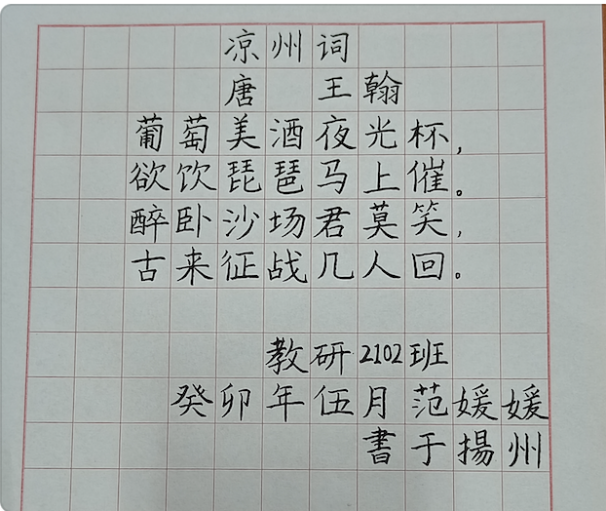 凉州词
唐 王翰
葡萄美酒夜光杯,
欲饮琵琶马上催。
醉卧沙场君莫笑,
古来征战几人回。
教研2102班
癸卯年伍月范媛媛
書于揚州